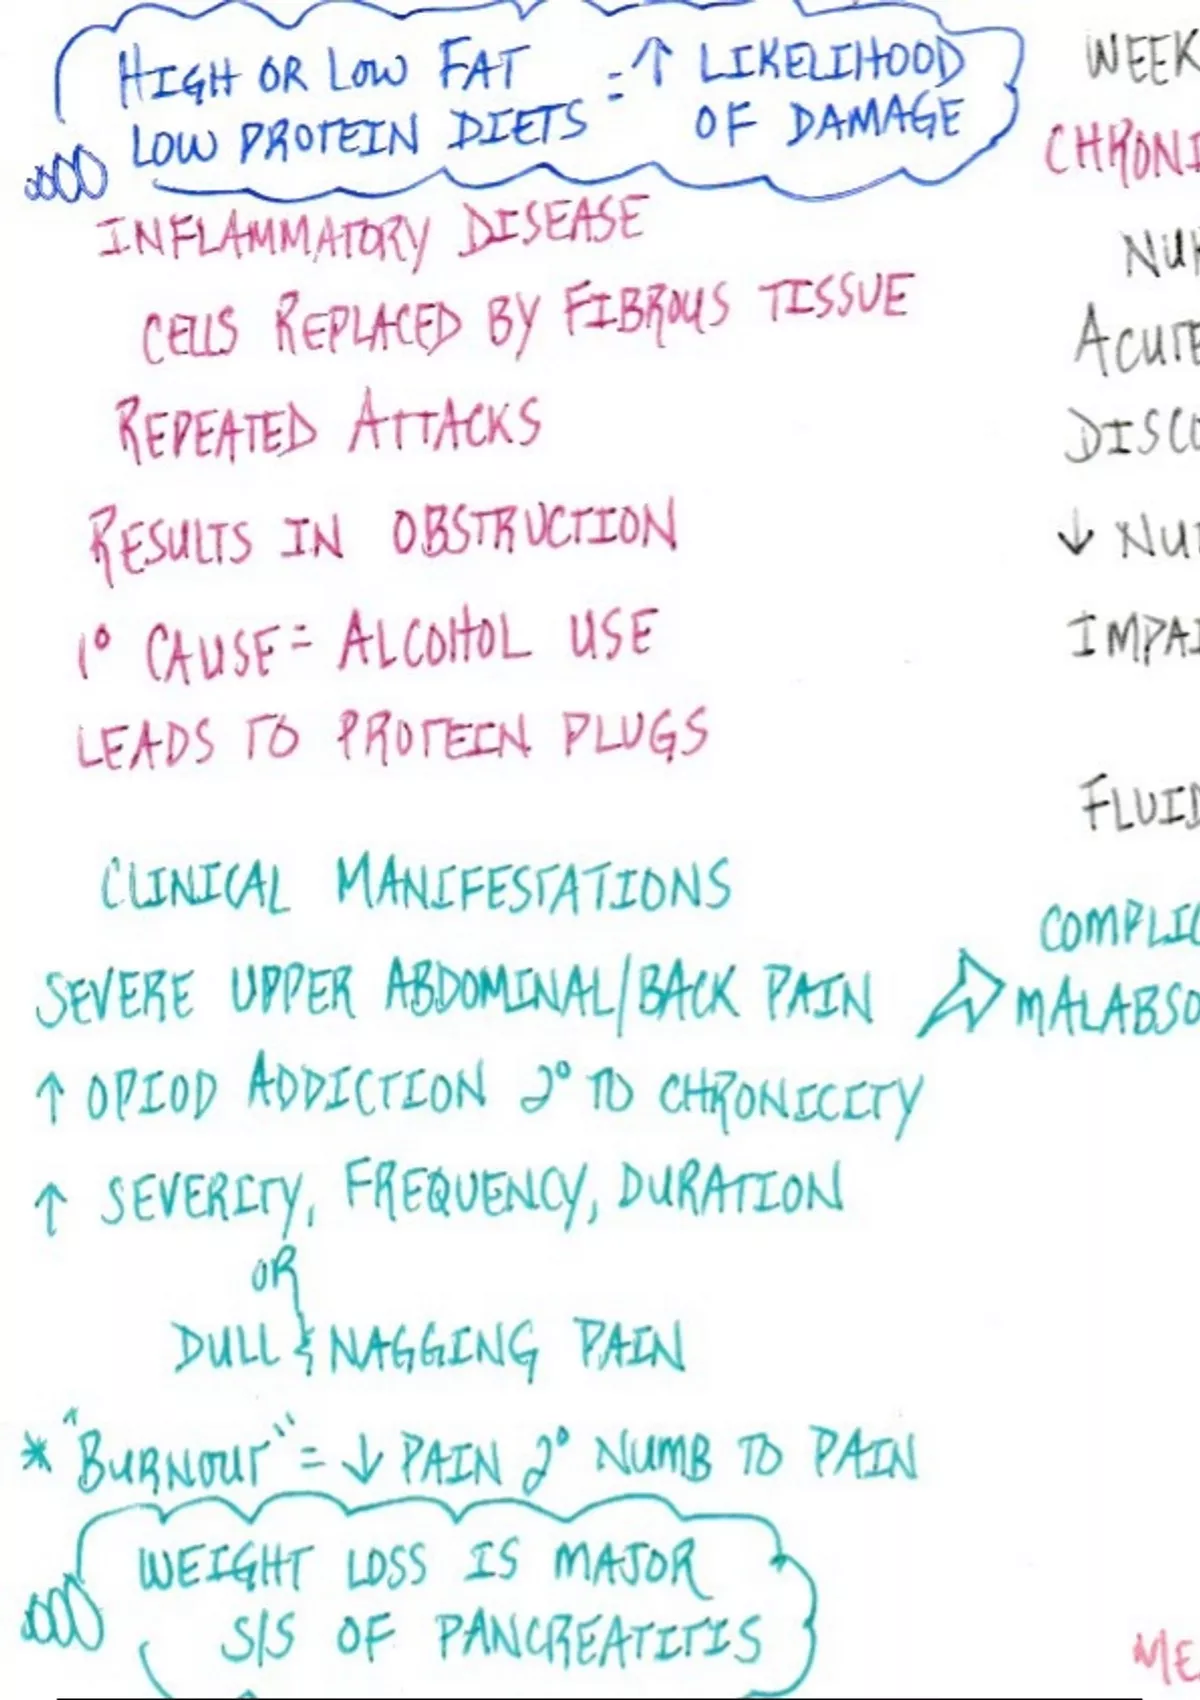 HIGH OR LOW FAT
LOW PROTEIN DIETS = ↑ LIKELIHOOD OF DAMAGE
INFLAMMATORY DISEASE
CELLS REPLACED BY FIBROUS TISSUE
REPEATED ATTACKS
RESULTS IN OBSTRUCTION
1° CAUSE = ALCOHOL USE
LEADS TO PROTEIN PLUGS
CLINICAL MANIFESTATIONS
SEVERE UPPER ABDOMINAL/BACK PAIN
↑ OPIOD ADDICTION 2° TO CHRONICITY
↑ SEVERITY, FREQUENCY, DURATION
OR
DULL & NAGGING PAIN
* "BURNOUT" = ↓ PAIN 2° NUMB TO PAIN
WEIGHT LOSS IS MAJOR
S/S OF PANCREATITIS
WEEK
CHRONI
ACUTE
DISCO
↓ NU
IMPAI
FLUID
COMPLIC
MALABSO
ME